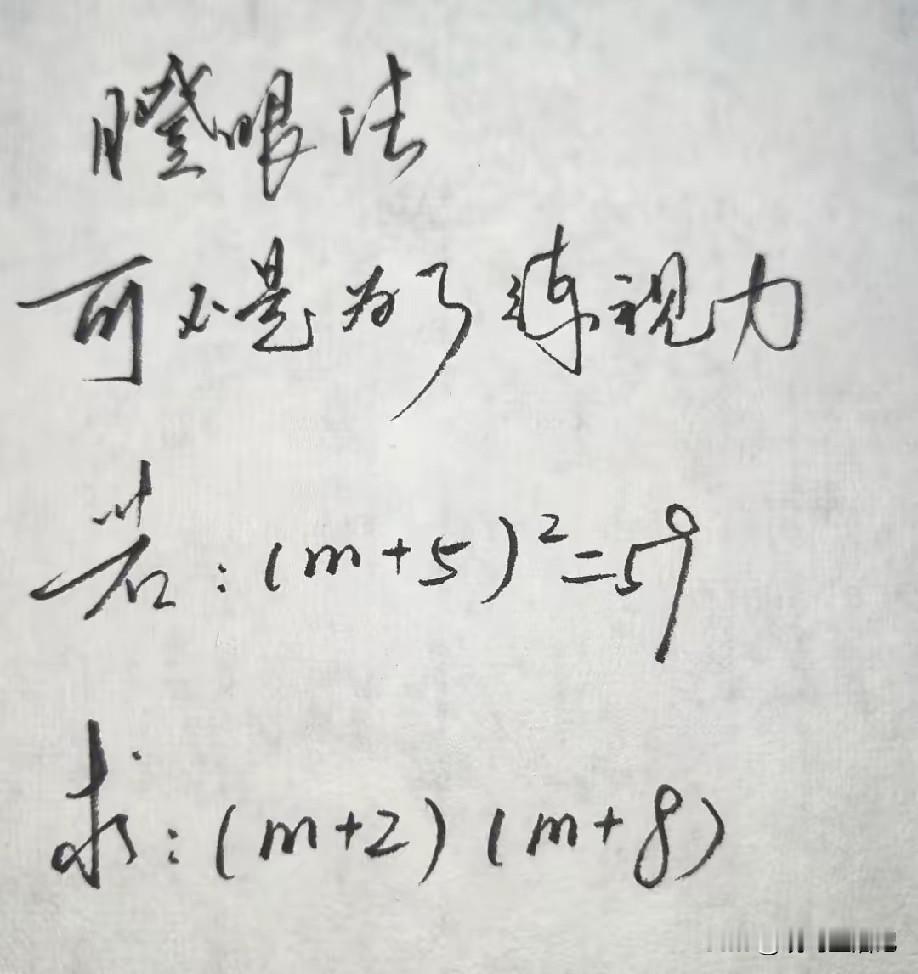 瞪眼法
可不是为了练视力
若:(m+5)²=59
求:(m+2)(m+8)